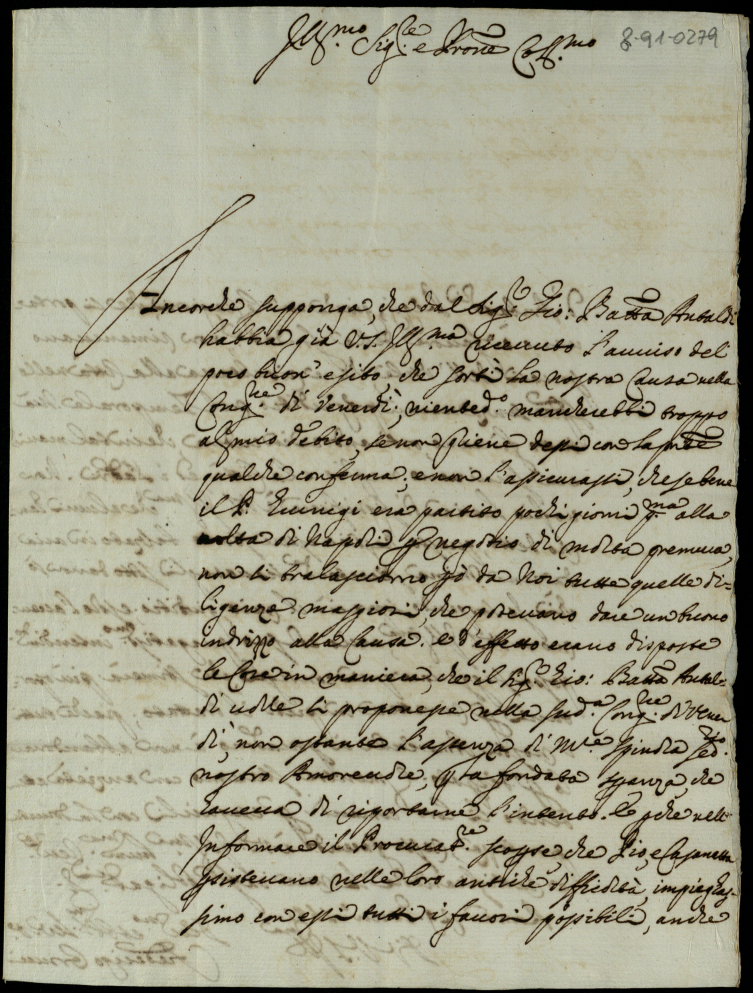 Ill.mo Sig.re e Prone Coll.mo
8-91-0279
Ancorche supponga, che dal Sig.r Gio: Batta Antaldi
habbia già V.S. Ill.ma riceuuto l'auuiso del
poco buon' esito, che sortì la nostra Causa nella
Cong.ne di Venerdì, niented.o mancherebbi troppo
al mio debito, se non gliene dessi con la pnte
qualche conferma, e non l'assicurassi, che se bene
il P. era partito pochi giorni p.ma alla
uolta di Napoli p negotio di molta premura,
non si tralasciorno gò da Noi tutte quelle di=
ligenze maggiori, che poteuano dare un buono
indrizzo alla Causa. e d'effetto erano disposte
le Cose in maniera, che il Sig.r Gio: Batta Antal=
di uolle si proponesse nella sud.a Cong.ne di Vener
di, non ostante l'assenza di M.re Spinola
nostro Amoreuole, p la fondata speranza, che
haueua di riportarne l'intento. E pche nell'
Informare il Procurat.re scoprse che Pio, e Casanatta
psisteuano nelle loro antiche difficoltà, impiegas=
simo con essi tutti i fauori possibili, anche